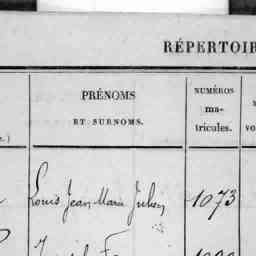 RÉPERTOIR
PRÉNOMS
ET SURNOMS.
NUMÉROS
ma-
tricules.
vo
Louis Jean Marie Julien 1073